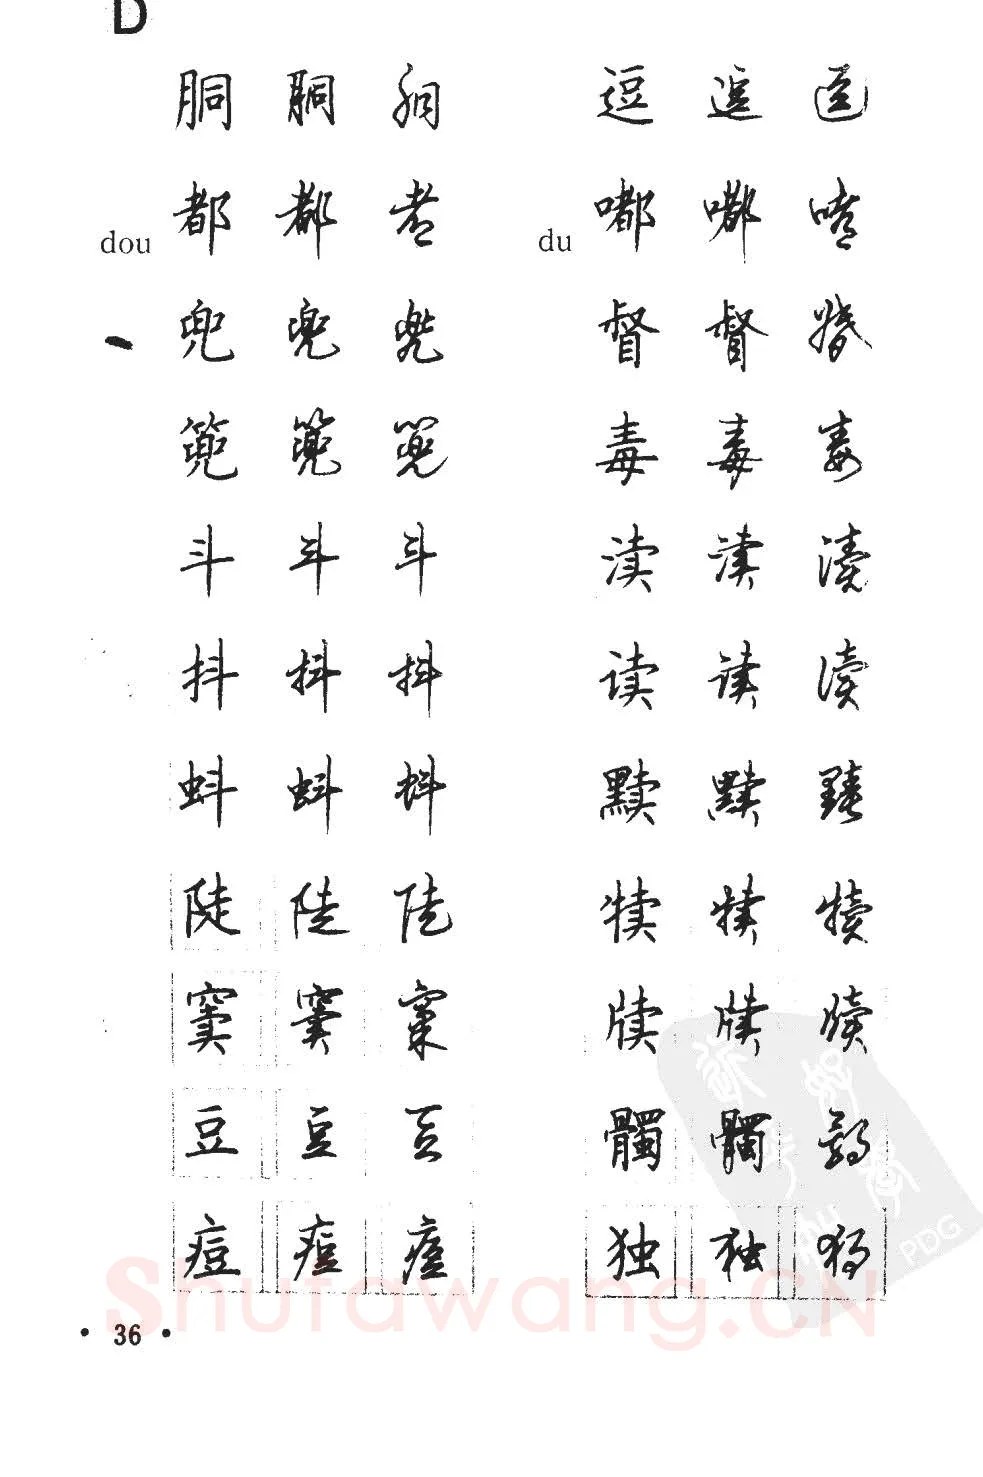 D
胴 胴 胴
dou 都 都 都
兜 兜 兜
篼 篼 篼
斗 斗 斗
抖 抖 抖
蚪 蚪 蚪
陡 陡 陡
窦 窦 窦
豆 豆 豆
痘 痘 痘
逗 逗 逗
du 嘟 嘟 嘟
督 督 督
毒 毒 毒
渎 渎 渎
读 读 读
黩 黩 黩
犊 犊 犊
牍 牍 牍
髑 髑 髑
独 独 独
PDG
Shufawang.CN
· 36 ·